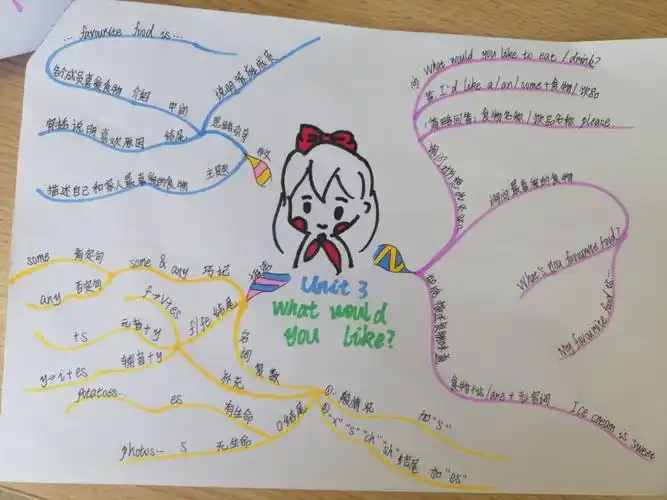 Unit 3
What would
you like?
作文
主题
描述自己和家人最喜爱的食物
思路引导
说明家庭成员
中间
介绍
各个成员喜爱食物
... favourite food is...
结尾
说明喜欢原因
问 What would you like to eat / drink?
答 I'd like a / an / some + 食物 / 饮品
食物名称 / 饮品名称, please.
询问最喜爱的食物
What's your favourite food?
My favourite food is...
食物 + is / are + 形容词
Ice cream is sweet
语法
some & any 巧记
some 肯定句
any 否定句
f / fe 结尾
f→v+es
元音+y
+s
辅音+y
y→i+es
名词复数
补充
O结尾
有生命
es
potatoes...
无生命
s
photos...
①一般情况 加“s”
②“x” “s” “ch” “sh” 结尾 加“es”